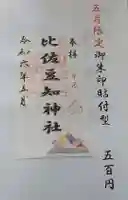 五月限定
御朱印貼付型
五百円
奉拝
比佐豆知神社
令和六年五月